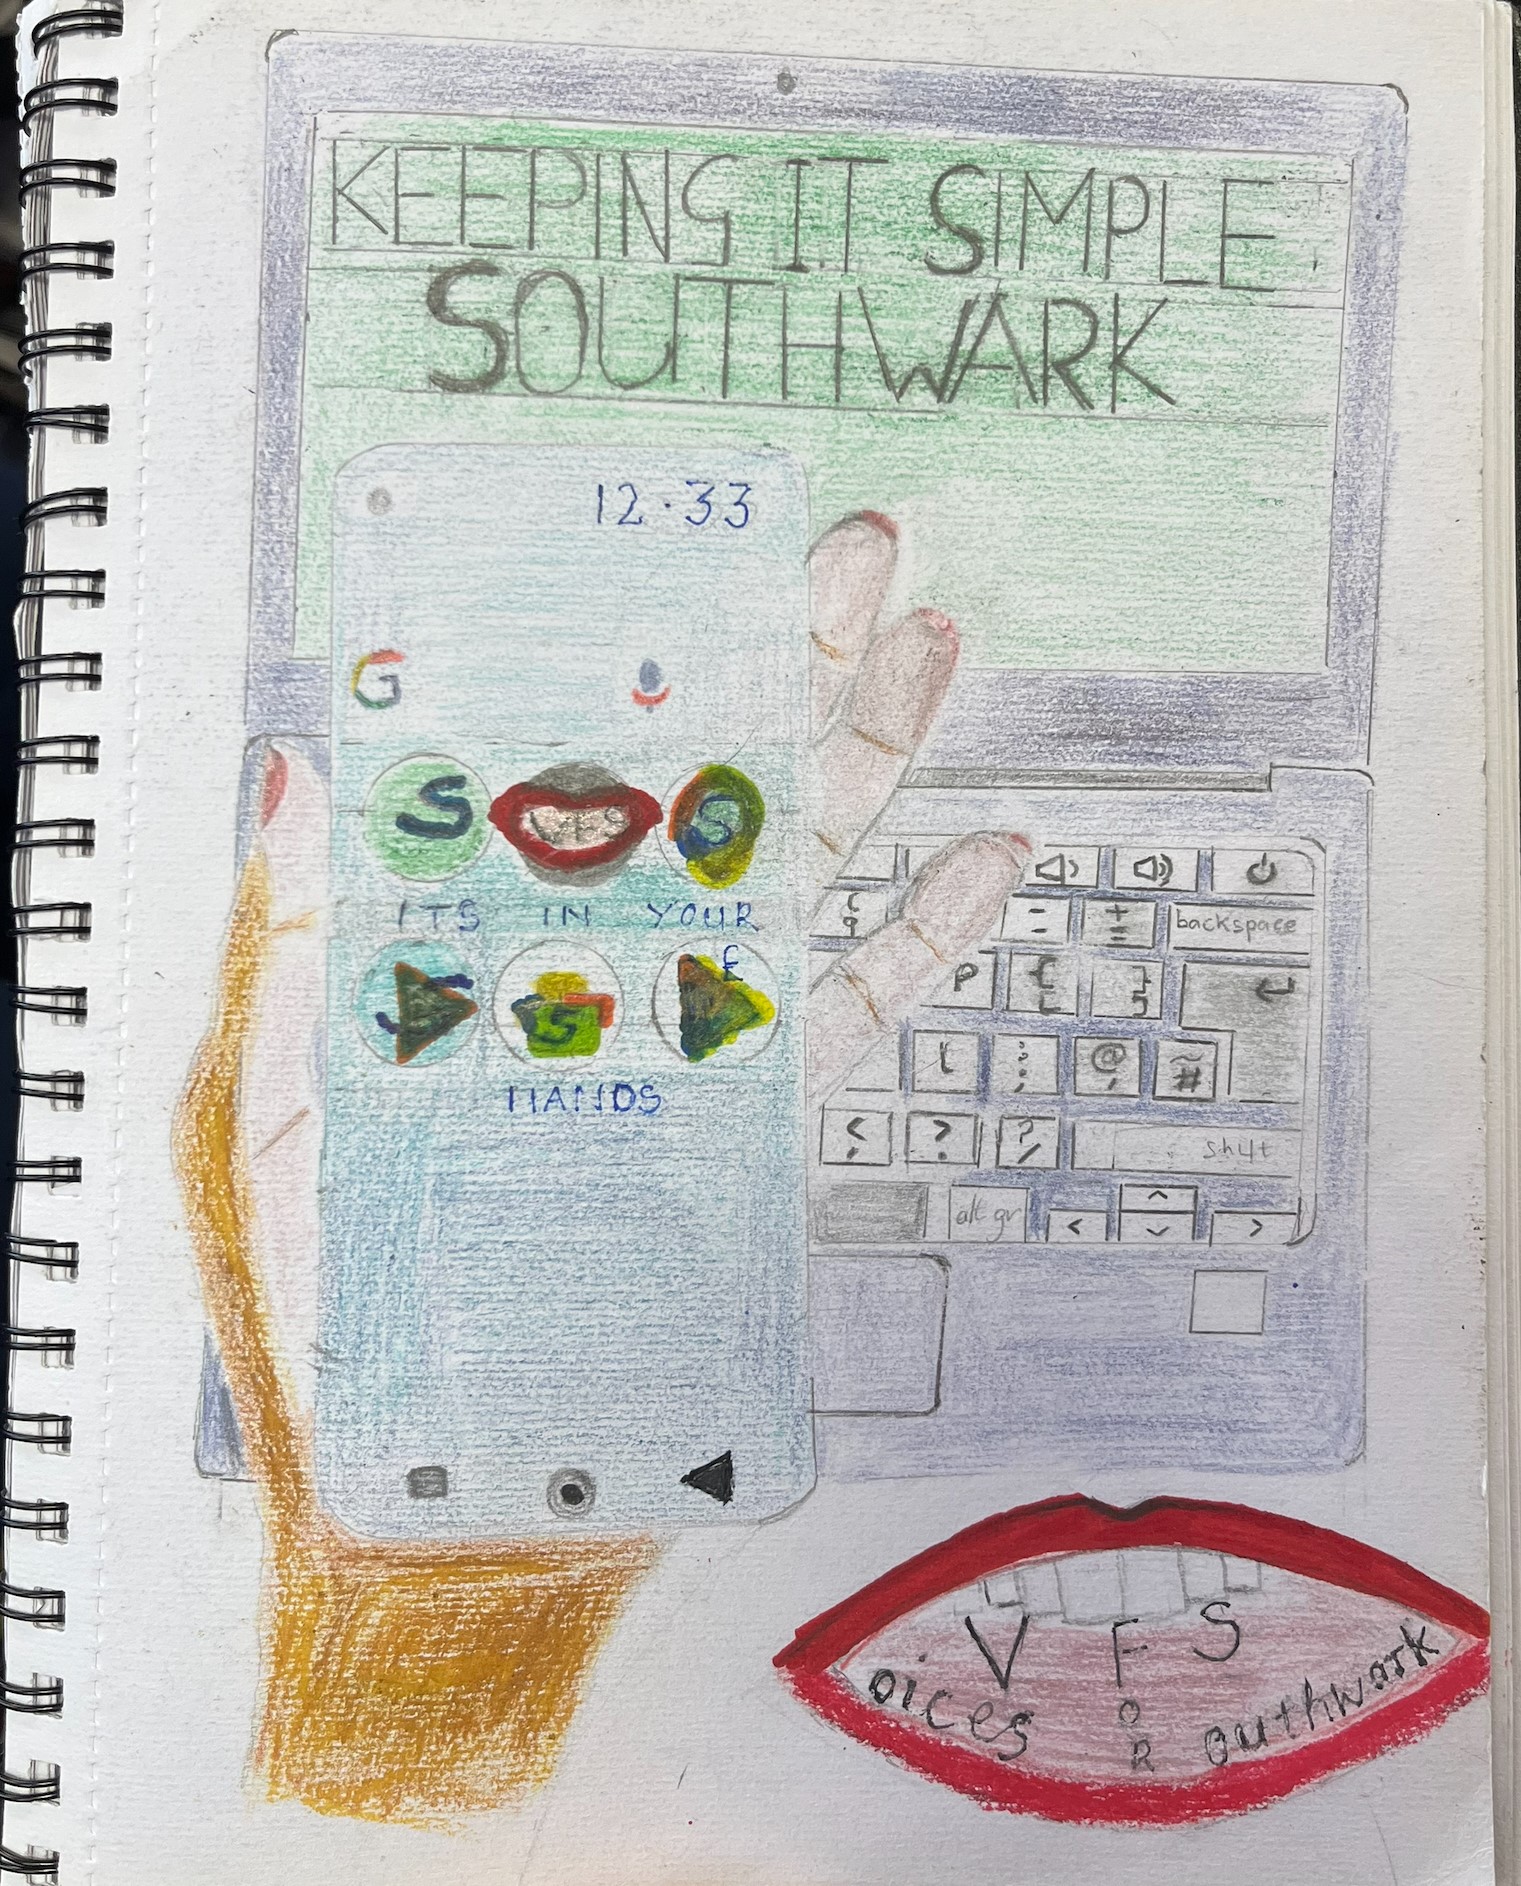 KEEPING IT SIMPLE
SOUTHWARK
12.33
G
S VFS S
ITS IN YOUR
£
S
HANDS
backspace
P { [ } ]
L : ; @ ' ~ #
< , > . ? /
shift
alt gr < ^ v >
V F S
oices OR outhwark